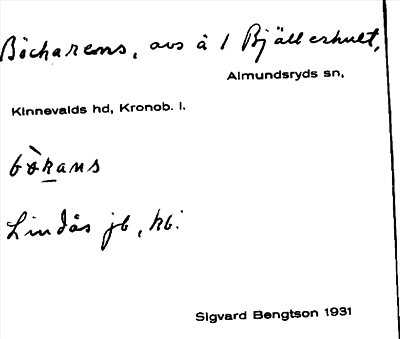 Böcharens, avs å 1 Bjällerhult,
Almundsryds sn,
Kinnevalds hd, Kronob. l.
bò̀kans
Lindås jb, kb:
Sigvard Bengtson 1931